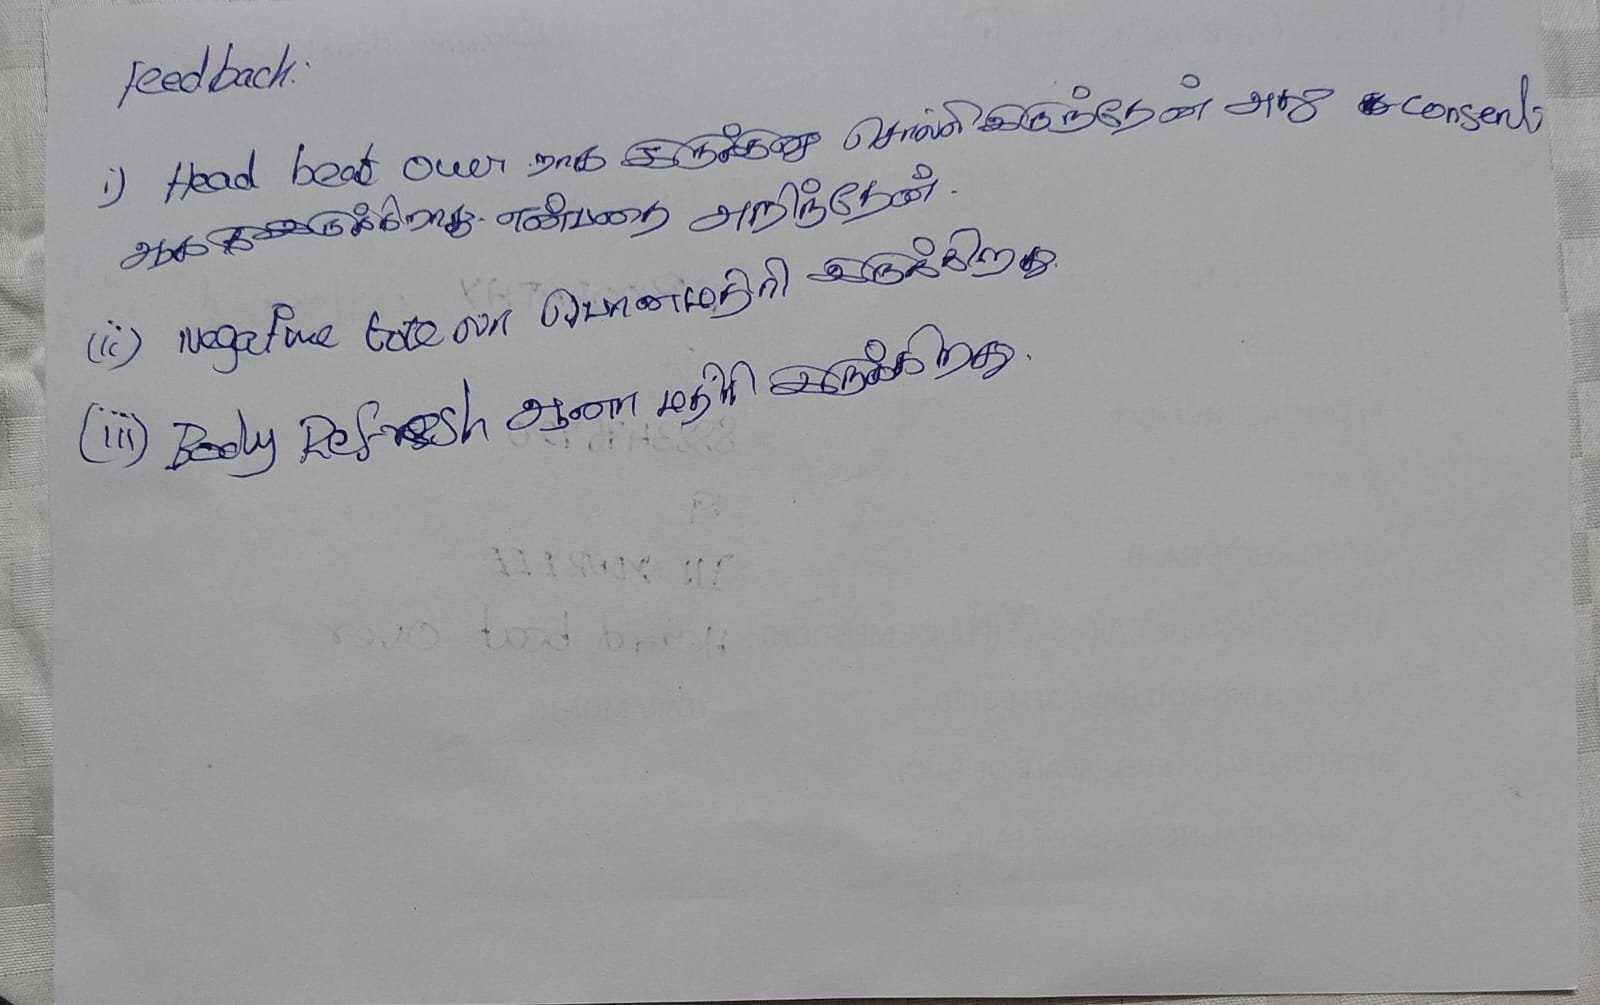 Feedback:
i) Head beat over றாக இருக்குனு சொல்லி இருந்தேன் அது consent
ஆக இருக்கிறாது. என்பதை அறிந்தேன்.
(ii) Negative லா போனமதிரி இருக்கிறது.
(iii) Body Refresh ஆனா மதிரி இருக்கிறது.